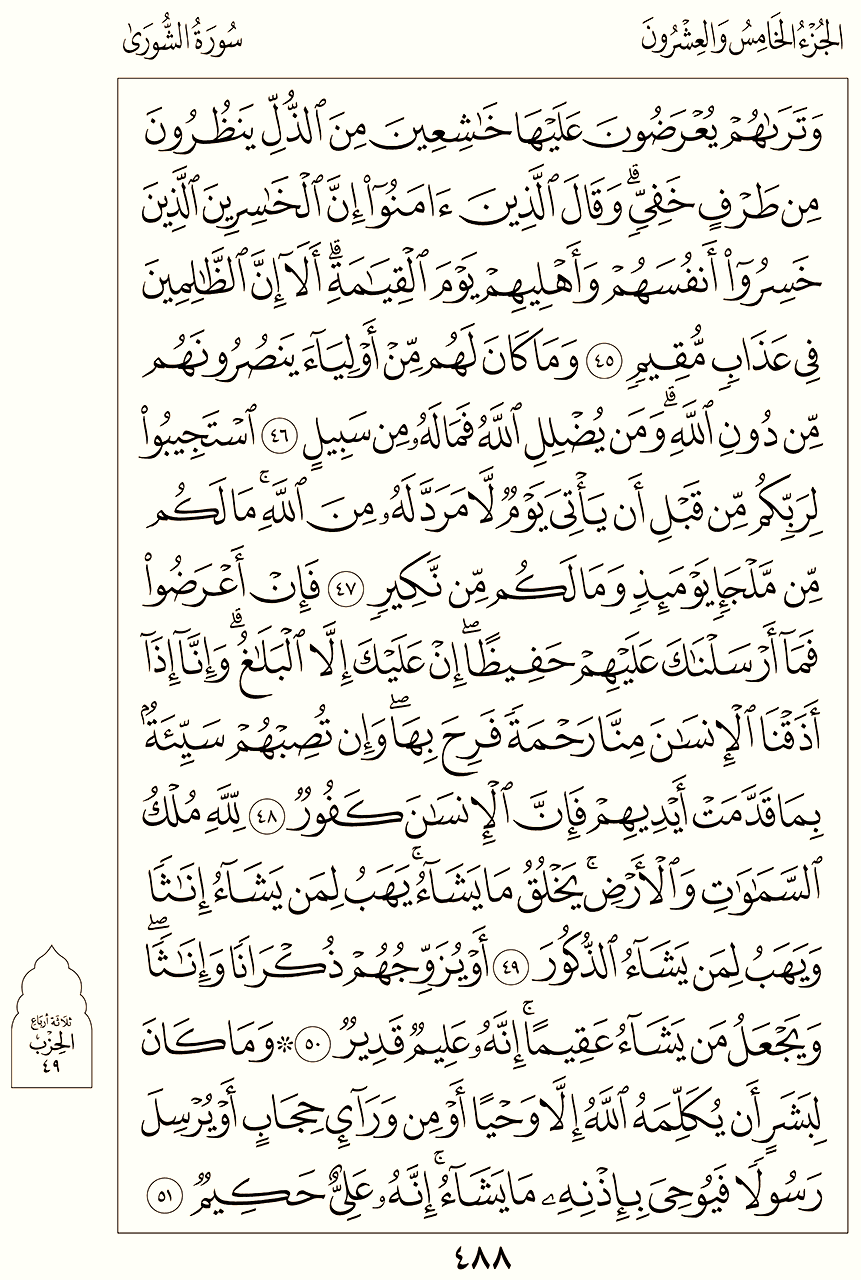 الجُزْءُ الخَامِسُ وَالعِشْرُونَ
سُورَةُ الشُّورَىٰ
وَتَرَىٰهُمْ يُعْرَضُونَ عَلَيْهَا خَٰشِعِينَ مِنَ ٱلذُّلِّ يَنظُرُونَ
مِن طَرْفٍ خَفِيٍّۗ وَقَالَ ٱلَّذِينَ ءَامَنُوٓا۟ إِنَّ ٱلْخَٰسِرِينَ ٱلَّذِينَ
خَسِرُوٓا۟ أَنفُسَهُمْ وَأَهْلِيهِمْ يَوْمَ ٱلْقِيَٰمَةِۗ أَلَآ إِنَّ ٱلظَّٰلِمِينَ
فِى عَذَابٍ مُّقِيمٍ ٤٥ وَمَا كَانَ لَهُم مِّنْ أَوْلِيَآءَ يَنصُرُونَهُم
مِّن دُونِ ٱللَّهِۗ وَمَن يُضْلِلِ ٱللَّهُ فَمَا لَهُۥ مِن سَبِيلٍ ٤٦ ٱسْتَجِيبُوا۟
لِرَبِّكُم مِّن قَبْلِ أَن يَأْتِىَ يَوْمٌ لَّا مَرَدَّ لَهُۥ مِنَ ٱللَّهِۚ مَا لَكُم
مِّن مَّلْجَإٍ يَوْمَئِذٍ وَمَا لَكُم مِّن نَّكِيرٍ ٤٧ فَإِنْ أَعْرَضُوا۟
فَمَآ أَرْسَلْنَٰكَ عَلَيْهِمْ حَفِيظًاۖ إِنْ عَلَيْكَ إِلَّا ٱلْبَلَٰغُۗ وَإِنَّآ إِذَآ
أَذَقْنَا ٱلْإِنسَٰنَ مِنَّا رَحْمَةً فَرِحَ بِهَاۖ وَإِن تُصِبْهُمْ سَيِّئَةٌۢ
بِمَا قَدَّمَتْ أَيْدِيهِمْ فَإِنَّ ٱلْإِنسَٰنَ كَفُورٌ ٤٨ لِّلَّهِ مُلْكُ
ٱلسَّمَٰوَٰتِ وَٱلْأَرْضِۚ يَخْلُقُ مَا يَشَآءُۚ يَهَبُ لِمَن يَشَآءُ إِنَٰثًا
وَيَهَبُ لِمَن يَشَآءُ ٱلذُّكُورَ ٤٩ أَوْ يُزَوِّجُهُمْ ذُكْرَانًا وَإِنَٰثًاۖ
وَيَجْعَلُ مَن يَشَآءُ عَقِيمًاۚ إِنَّهُۥ عَلِيمٌ قَدِيرٌ ٥٠ ۞ وَمَا كَانَ
لِبَشَرٍ أَن يُكَلِّمَهُ ٱللَّهُ إِلَّا وَحْيًا أَوْ مِن وَرَآئِ حِجَابٍ أَوْ يُرْسِلَ
رَسُولًا فَيُوحِىَ بِإِذْنِهِۦ مَا يَشَآءُۚ إِنَّهُۥ عَلِىٌّ حَكِيمٌ ٥١
ثلاثة أرباع
الحِزْب
٤٩
٤٨٨